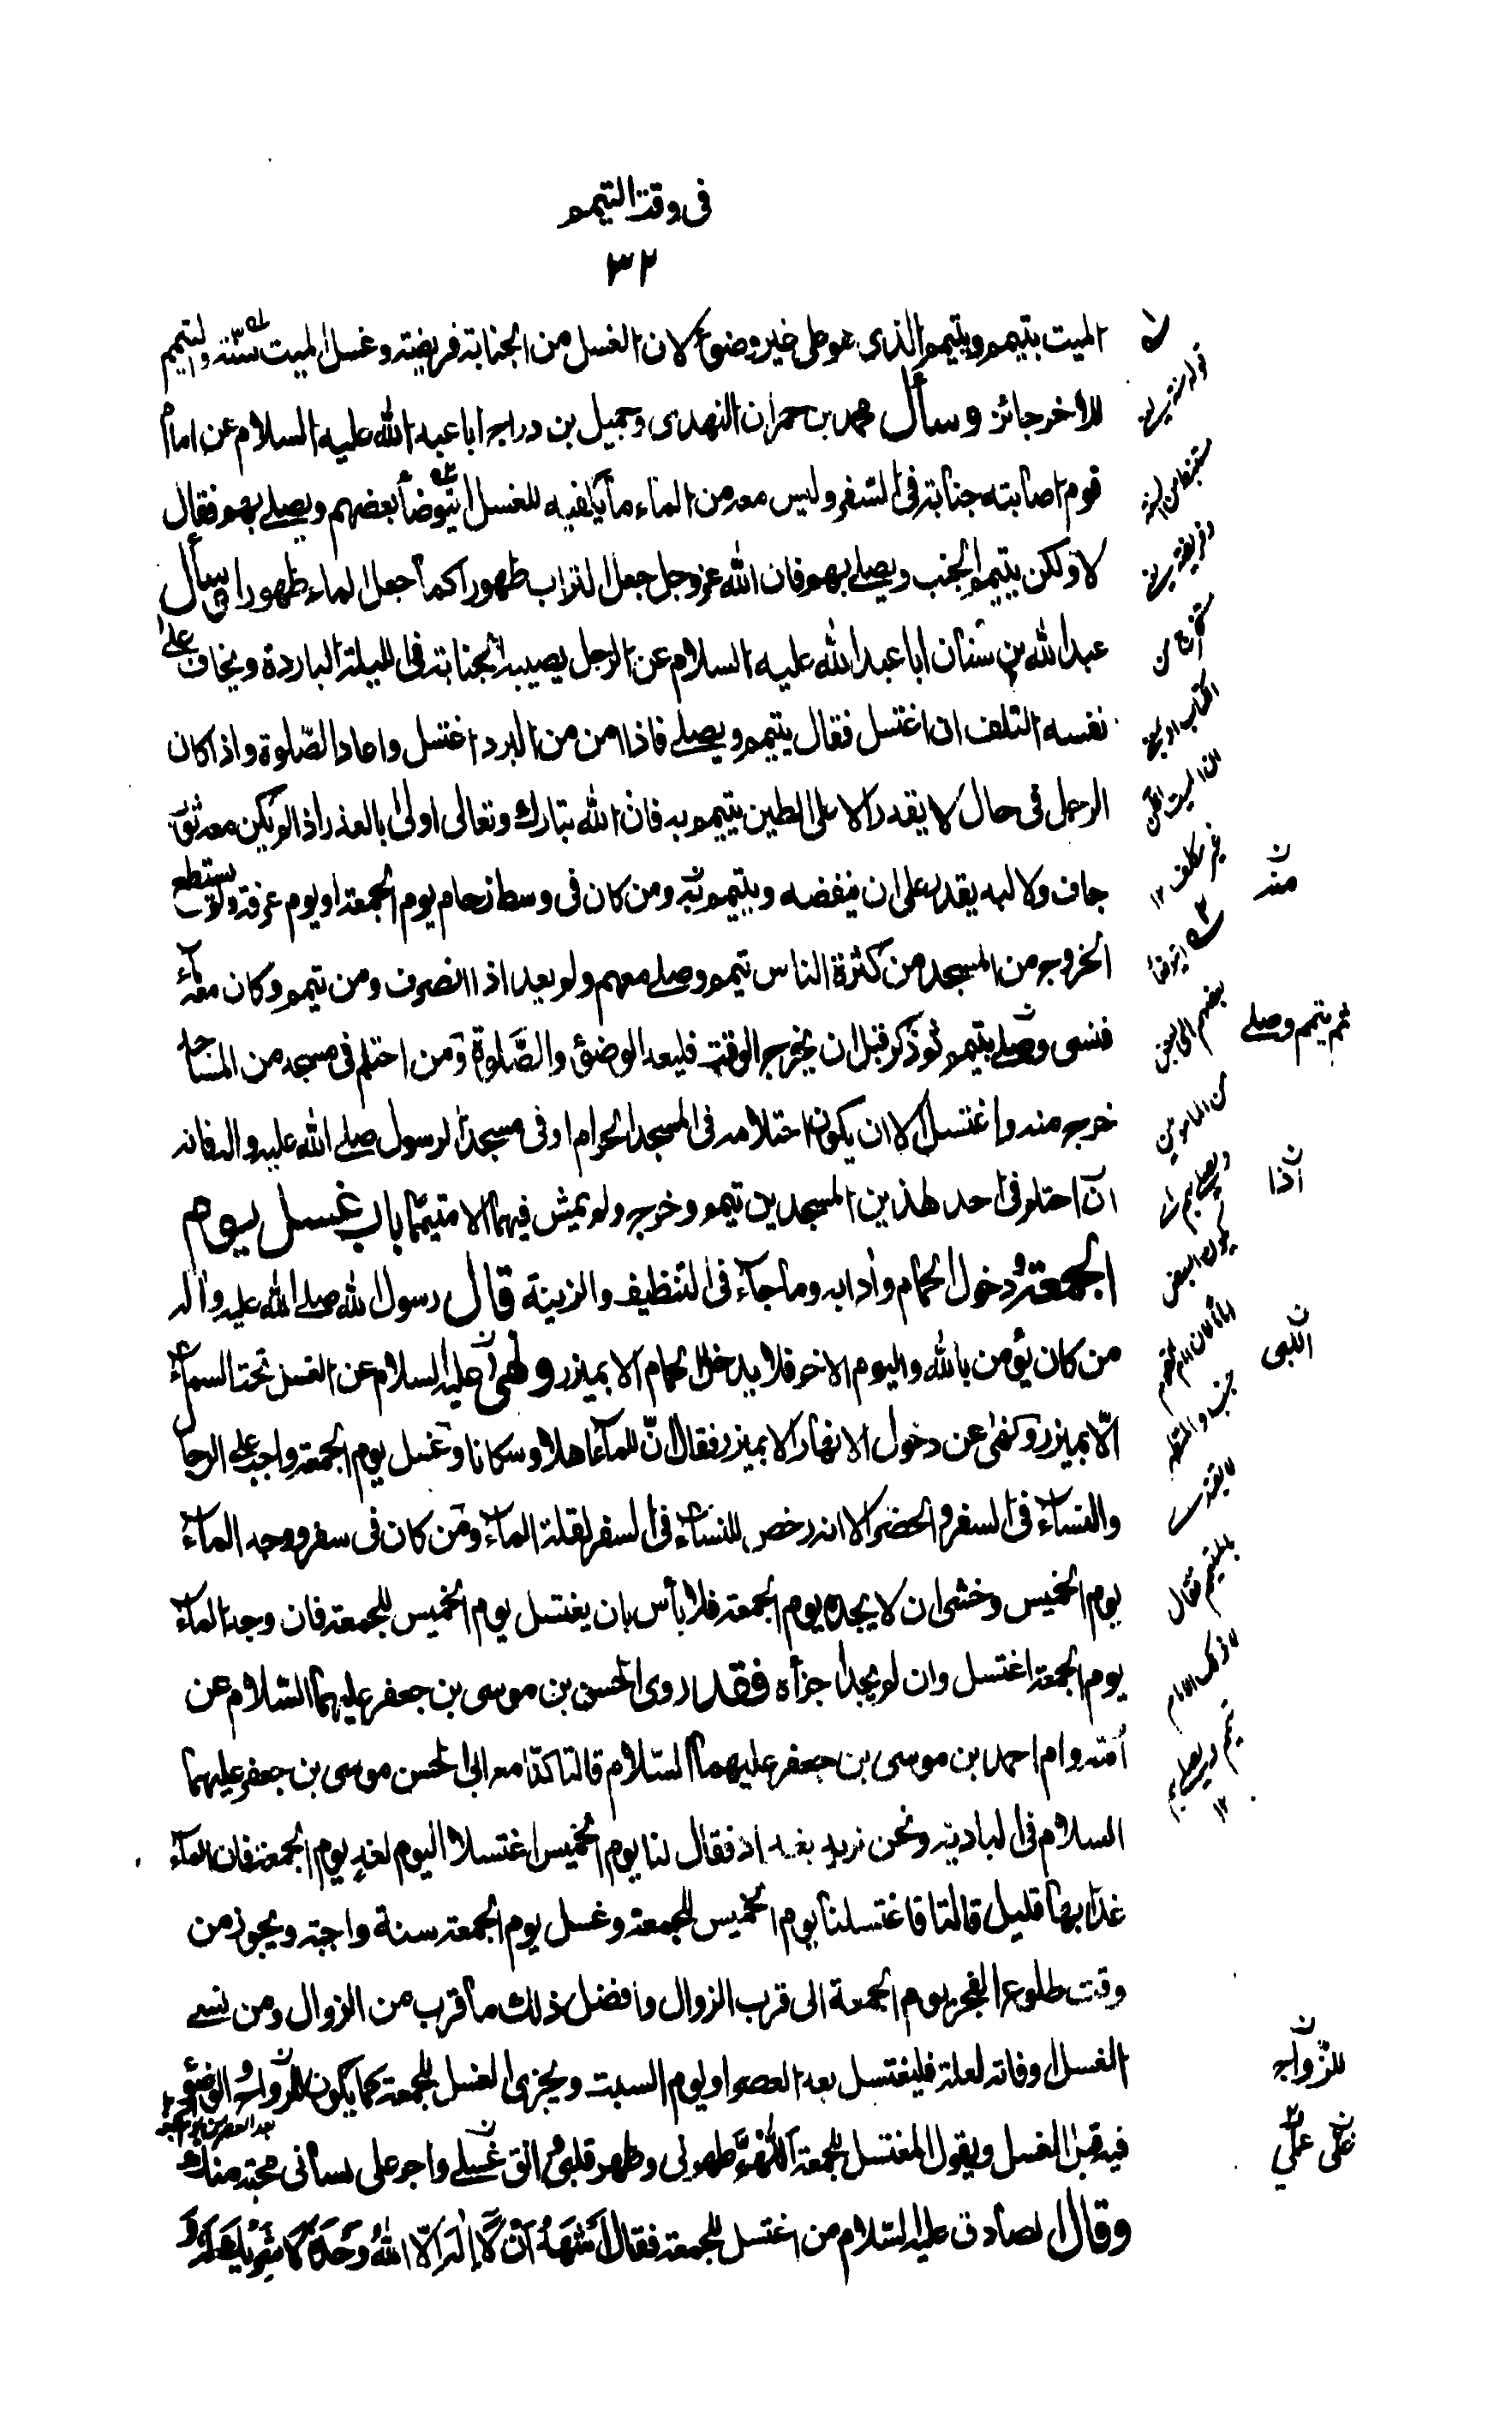 فى وقت التيمم
٣٢
الميت بتيمم ويتيمم الذى هو على غير وضوء لان الغسل من الجنابة فريضة وغسل الميت سنّة والتيمم
للاخر جائز وسأل محمد بن حمران النهدى وجميل بن دراج ابا عبد الله عليه السلام عن امام
قوم اصابته جنابة فى السفر وليس معه من الماء ما يكفيه للغسل ايتوضأ بعضهم ويصلے بهم فقال
لا ولكن يتيمم الجنب ويصلے بهم فان الله عز وجل جعل التراب طهورا كما جعل الماء طهورا وسأل
عبد الله بن سنان ابا عبد الله عليه السلام عن الرجل يصيبه الجنابة فى الليلة الباردة ويخاف على
نفسه التلف ان اغتسل فقال يتيمم ويصلے فاذا امن من البرد اغتسل واعاد الصّلوة واذا كان
الرجل فى حال لا يقدر الا على الطين يتيمم به فان الله تبارك وتعالى اولى بالعذر اذا لم يكن معه ثوب
جاف ولا لبد يقدر على ان ينفضه ويتيمم به ومن كان فى وسط زحام يوم الجمعة او يوم عرفة ولم يستطع
الخروج من المسجد من كثرة الناس تيمم وصلے معهم ولم يعد اذا انصرف ومن تيمم وكان معه ماء
فنسى وصلے بتيمم ثم ذكر قبل ان يخرج الوقت فليعد الوضوء والصّلوة ومن احتلم فى مسجد من المساجد
خرج منه واغتسل الا ان يكون احتلامه فى المسجد الحرام او فى مسجد الرسول صلے الله عليه واله فانه
ان احتلم فى احد هذين المسجدين تيمم وخرج ولم يمش فيهما الا متيمّما باب غسل يوم
الجمعة ودخول الحمام وآدابه وما جاء فى التنظيف والزينة قال رسول الله صلے الله عليه واله
من كان يؤمن بالله واليوم الاخر فلا يدخل الحمام الا بميزر ونهى عليه السلام عن الغسل تحت السماء
الّا بميزر ونهى عن دخول الانهار الا بميزر فقال انّ للماء اهلا وسكانا وغسل يوم الجمعة واجب على الرجال
والنساء فى السفر والحضر الا انه رخص للنساء فى السفر لقلة الماء ومن كان فى سفر ووجد الماء
يوم الخميس وخشى ان لا يجده يوم الجمعة فلا بأس بان يغتسل يوم الخميس للجمعة فان وجد الماء
يوم الجمعة اغتسل وان لم يجد اجزأه فقد روى الحسن بن موسى بن جعفر عليهما السّلام عن
أمّه وام احمد بن موسى بن جعفر عليهما السّلام قالتا كنّا مع ابى الحسن موسى بن جعفر عليهما
السلام فى البادية ونحن نريد بغداد فقال لنا يوم الخميس اغتسلا اليوم لغد يوم الجمعة فان الماء
غدا بها قليل قالتا فاغتسلنا يوم الخميس للجمعة وغسل يوم الجمعة سنة واجبة ويجوز من
وقت طلوع الفجر يوم الجمعة الى قرب الزوال وافضل ذلك ما قرب من الزوال ومن نسے
الغسل او فاته لعلة فليغتسل بعد العصر او يوم السبت ويجزى الغسل للجمعة كما يكون للرواح والوضوء
فيه قبل الغسل ويقول المغتسل للجمعة اللّهمّ طهرنى وطهر قلبى وانق غسلے واجر على لسانى محبة منك
وقال الصادق عليه السّلام من اغتسل للجمعة فقال أشهد أن لا إله إلّا الله وحده لا شريك له
منه
ثم يتمم وصلے
اذا
النبى
للزواج